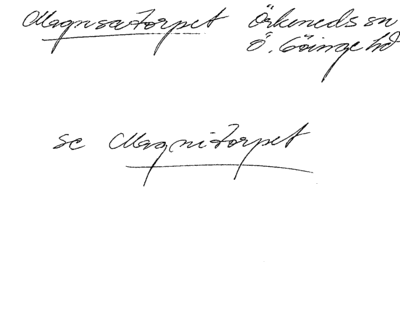 Magnsatorpet Örkeneds sn
Ö. Göinge hd
se Magnitorpet